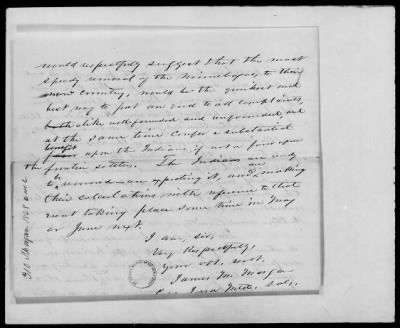 would respectfully suggest that the most
speedy removal of the Winnebagoes to their
new country, would be the quickest and
best way to put an end to all complaints,
both alike well founded and unfounded, and
at the same time confer a substantial
benefit
upon the Indians, if not a favor upon
the frontier settlers. The Indians are ready
be
to removed are expecting it, and are making
their calculations with reference to that
event taking place some time in May
or June next.
I am, sir,
Very Respectfully,
Your obt. servt.
James M. Morgan